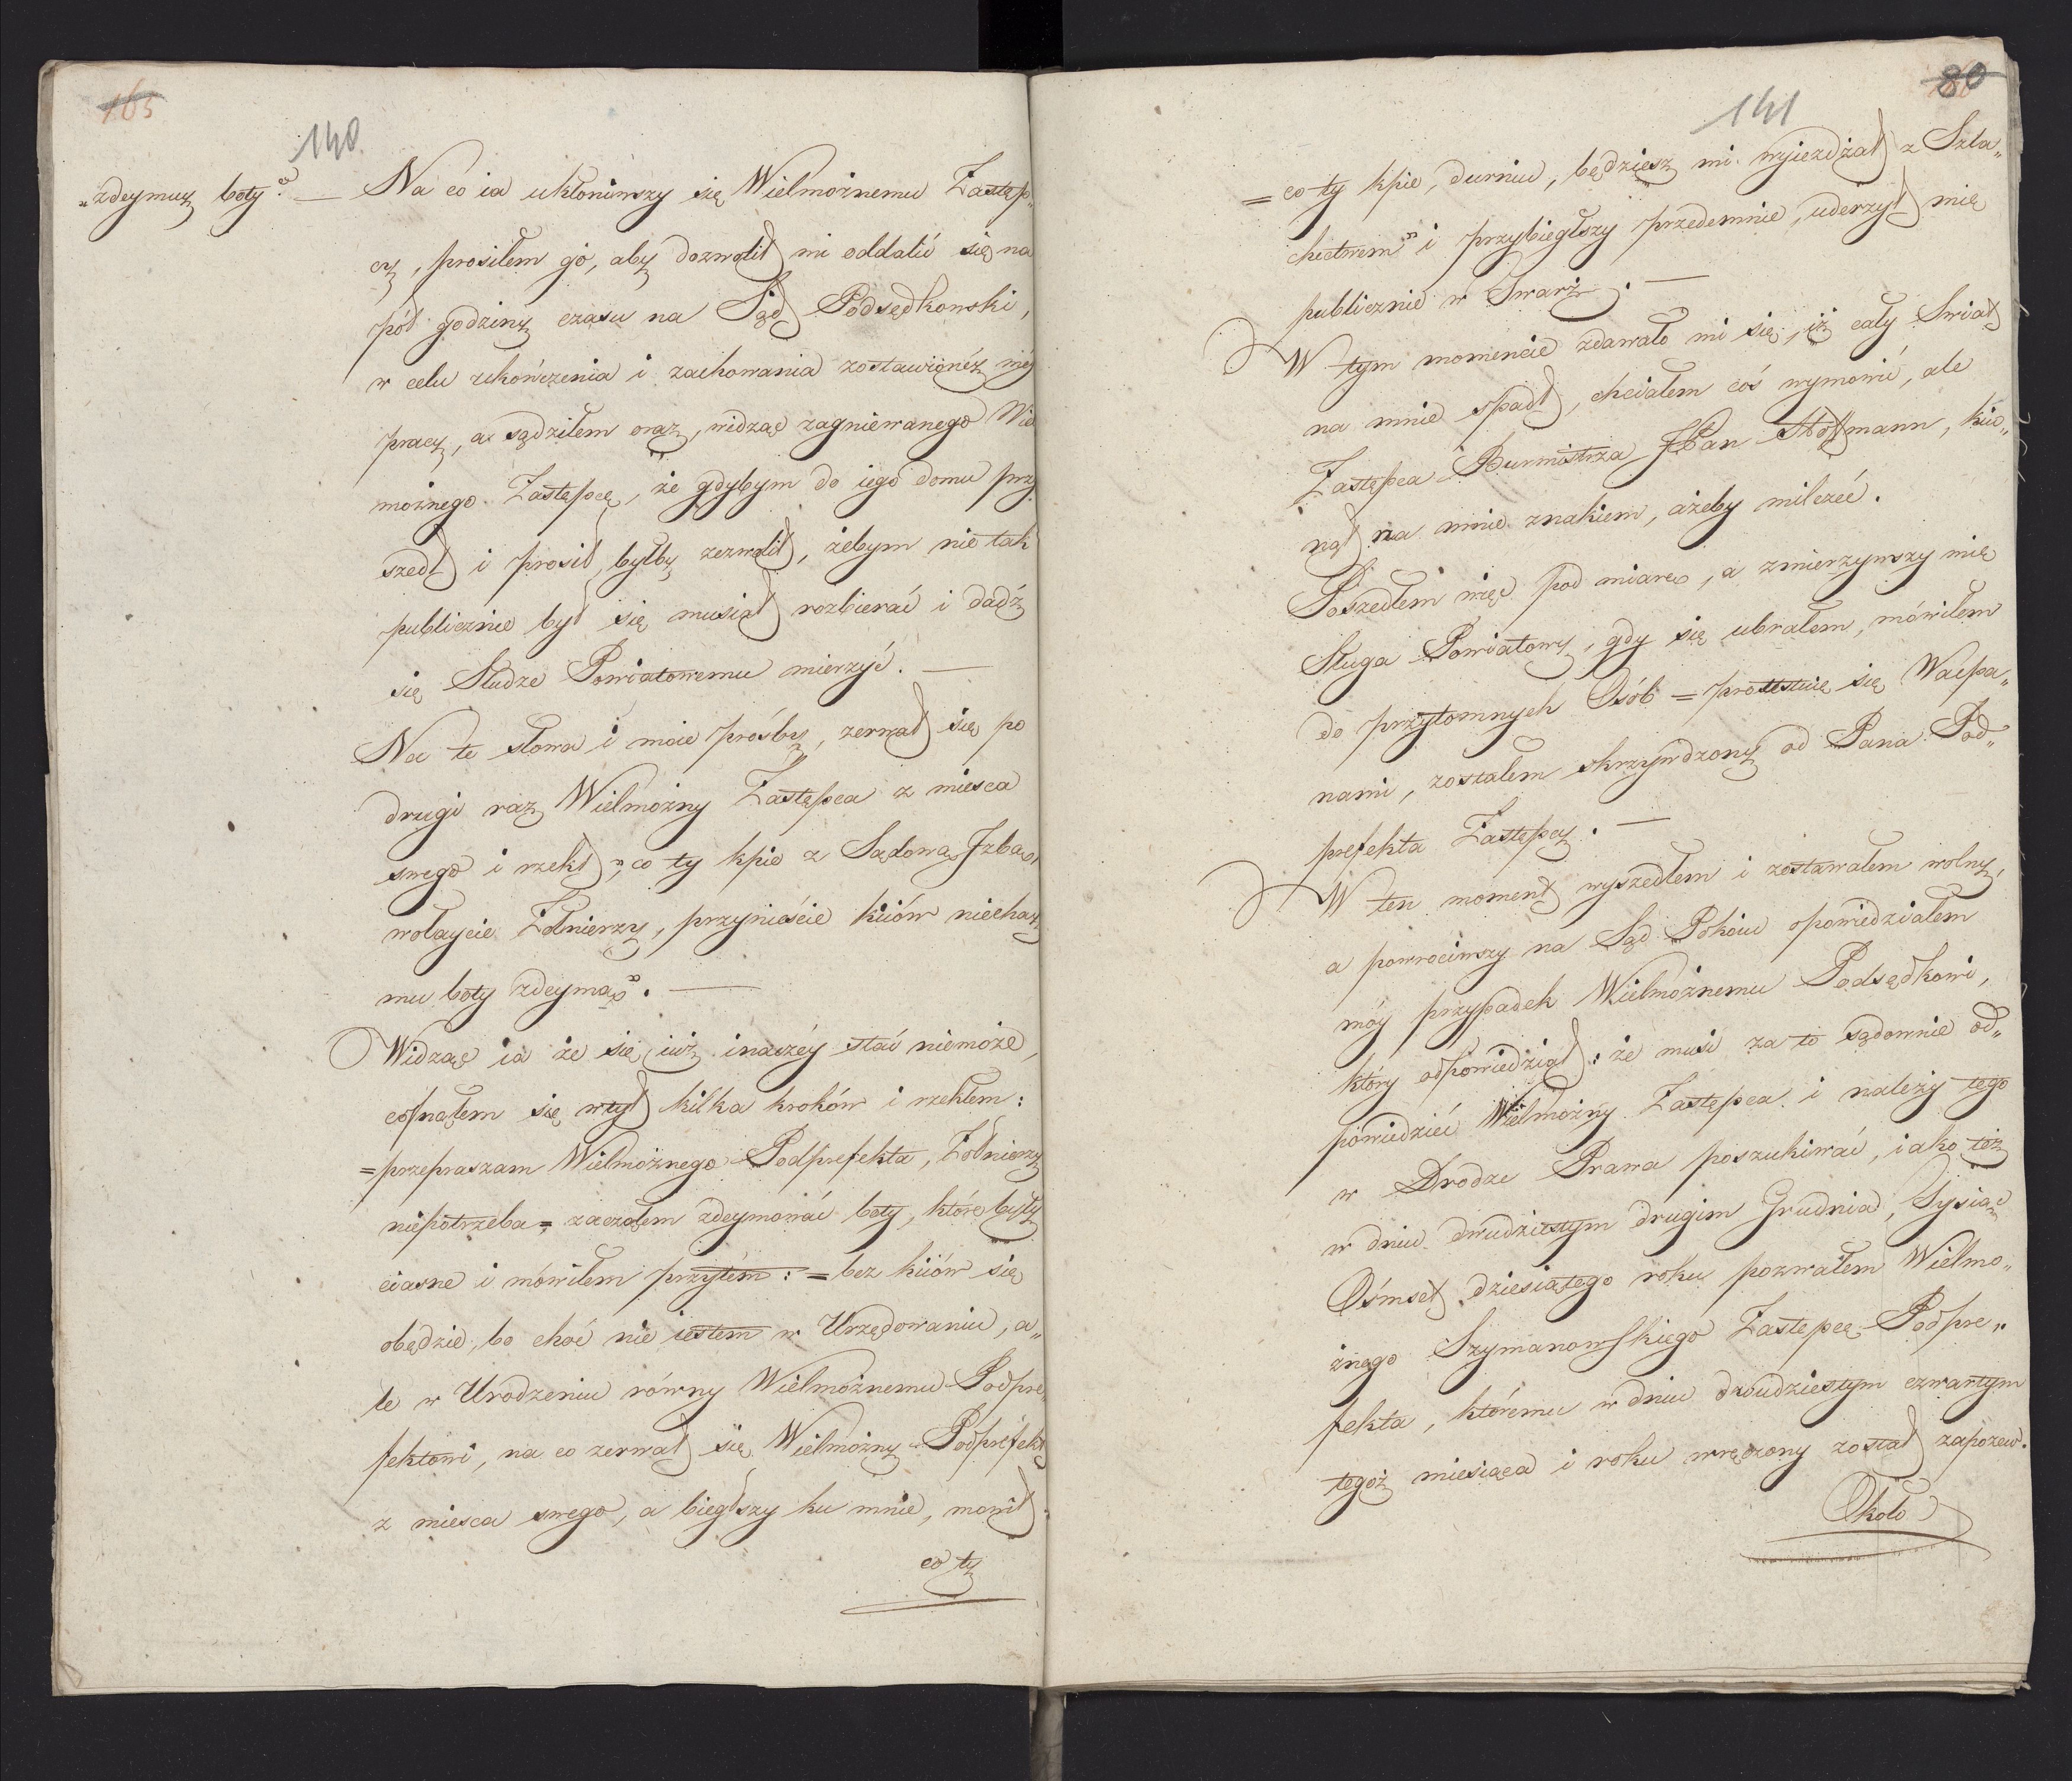 165
140
„zdeymuy boty“ — Na co ia ukłoniwszy się Wielmożnemu Zastęp„
cy, prosiłem go, aby dozwolił mi oddalić się na
pół godziny czasu na Sąd Podsędkowski,
w celu ukończenia i zachowania zostawionéy méy
pracy, a sądziłem oraz, widząc zagniewanego Wiel
możnego Zastępcę, że gdybym do iego domu przy
szedł i prosił, byłby zezwolił, żebym nie tak
publicznie był się musiał rozbierać i dadź
się Słudze Powiatowemu mierzyć. —
Na te słowa i moie prośby, zerwał się po
drugi raz Wielmożny Zastępca z miesca
swego i rzekł „co ty kpie z Sądową Izbą,
wołaycie Żołnierzy, przynieście kiiów niechay
mu boty zdeymą“. —
Widząc ia że się iuż inaczéy stać niemoże,
cofnąłem się wtył kilka kroków i rzekłem:
=przepraszam Wielmożnego Podprefekta, Żołnierzy
niepotrzeba= zacząłem zdeymować boty, które były
ciasne i mówiłem przytém: =bez kiiów się
obędzie, bo choć nie iestem w Urzędowaniu, a„
le w Urodzeniu równy Wielmożnemu Podpre„
fektowi, na co zerwał się Wielmożny Podprefekt
z miesca swego, a biegłszy ku mnie, mowił:
co ty
80
141
= co ty kpie, durniu, będziesz mi wyieżdżał z Szla„
chectwem“ i przybiegłszy przedemnie, uderzył mię
publicznie w Twarz. —
W tym momencie zdawało mi się, iż cały Swiat
na mnie spadł, chciałem coś wymowić, ale
Zastępca Burmistrza JPan Hoffmann, kiw„
nął na mnie znakiem, ażeby milczeć.
Poszedłem więc pod miarę, a zmierzywszy mię
Sługa Powiatowy, gdy się ubrałem, mówiłem
do przytomnych Osób = protestuię się Wacpa„
nami, zostałem skrzywdzony od Pana Pod„
prefekta Zastępcy. —
W ten moment wyszedłem i zostawałem wolny,
a powrociwszy na Sąd Pokoiu opowiedziałem
móy przypadek Wielmożnemu Podsędkowi,
który odpowiedział: że musi za to sądownie od„
powiedzieć Wielmożny Zastępca i należy tego
w Drodze Prawa poszukiwać, iako też
w dniu dwudziestym drugim Grudnia, Tysiąc
Ośmset dziesiątego roku pozwałem Wielmo„
żnego Szymanowskiego Zastępcę Podpre„
fekta, któremu w dniu dwudziestym czwartym
tegoż miesiąca i roku wręczony został zapozew.
Około